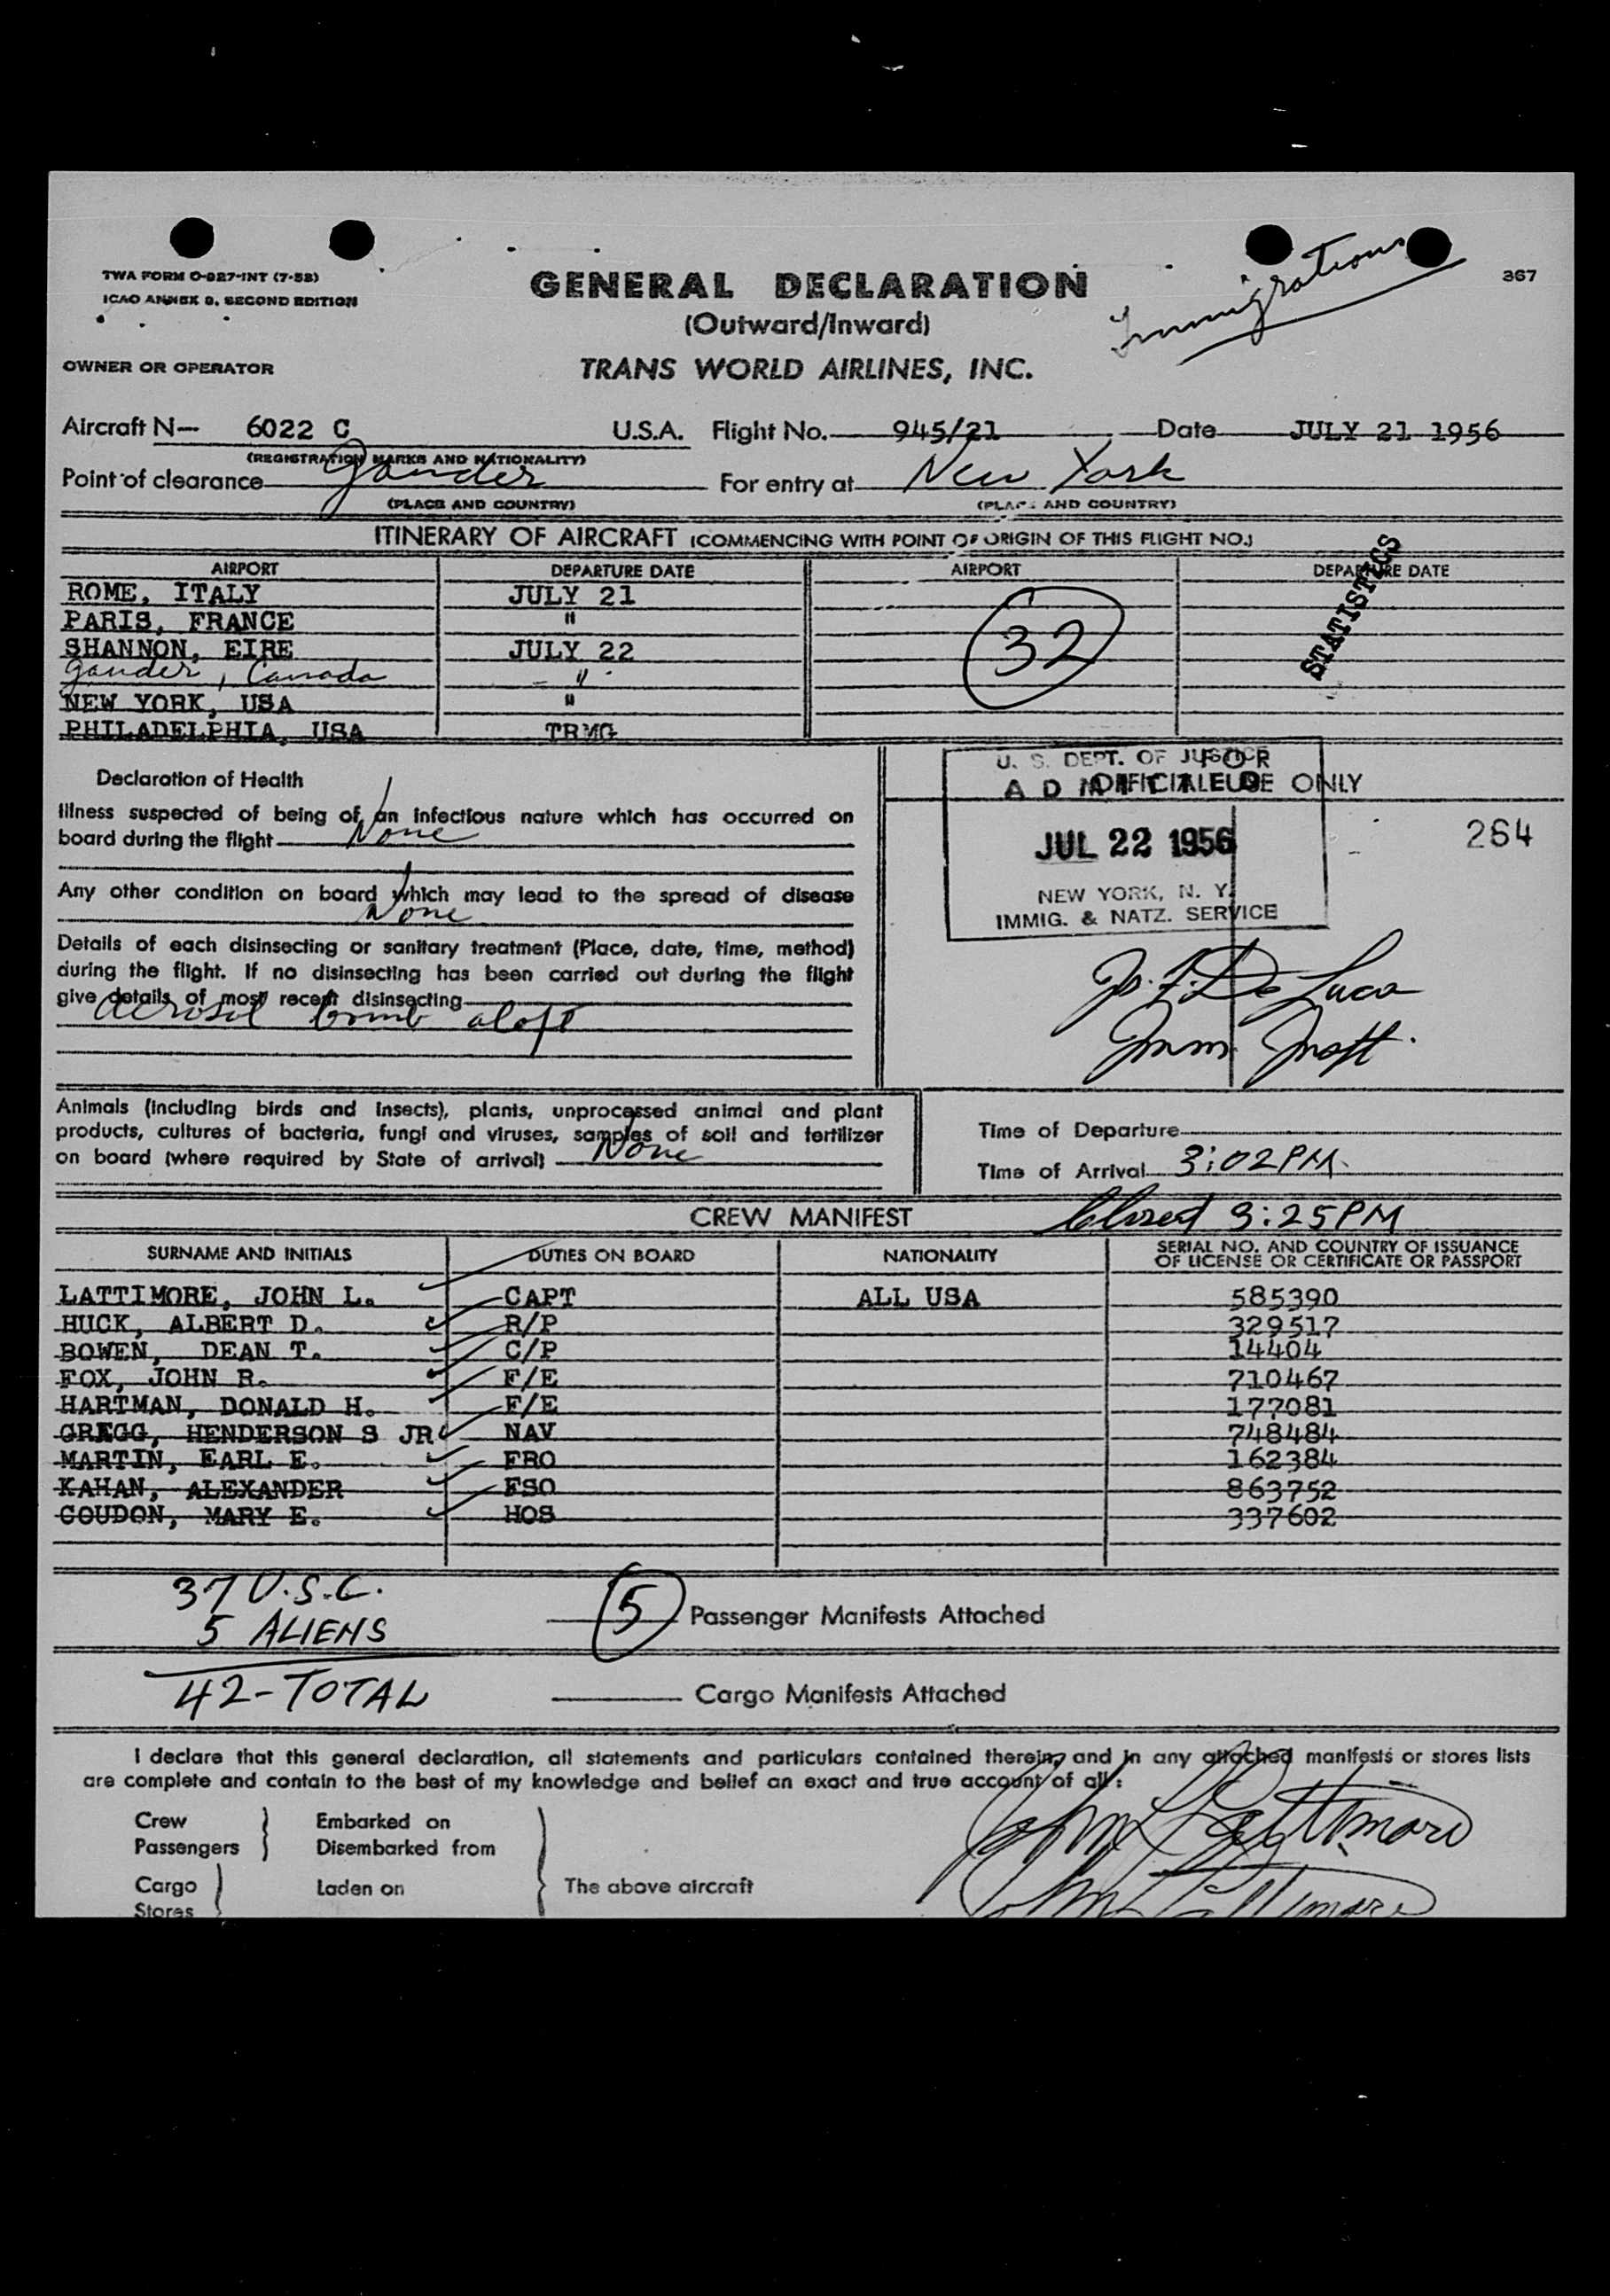 TWA FORM O-927-INT (7-52)
ICAO ANNEX 9, SECOND EDITION
GENERAL DECLARATION
(Outward/Inward)
Immigrations
367
OWNER OR OPERATOR
TRANS WORLD AIRLINES, INC.
Aircraft N— 6022 C U.S.A. Flight No. 945/21 Date JULY 21 1956
(REGISTRATION MARKS AND NATIONALITY)
Point of clearance Gander For entry at New York
(PLACE AND COUNTRY) (PLACE AND COUNTRY)
ITINERARY OF AIRCRAFT (COMMENCING WITH POINT OF ORIGIN OF THIS FLIGHT NO.)
AIRPORT DEPARTURE DATE AIRPORT DEPARTURE DATE
ROME, ITALY JULY 21
PARIS, FRANCE "
SHANNON, EIRE JULY 22
Gander, Canada "
NEW YORK, USA "
PHILADELPHIA, USA TRMG
32
STATISTICS
Declaration of Health
Illness suspected of being of an infectious nature which has occurred on
board during the flight None
Any other condition on board which may lead to the spread of disease
None
Details of each disinsecting or sanitary treatment (Place, date, time, method)
during the flight. If no disinsecting has been carried out during the flight
give details of most recent disinsecting
Aerosol bomb aloft
FOR
OFFICIAL USE ONLY
U. S. DEPT. OF JUSTICE
ADMITTED
JUL 22 1956
NEW YORK, N. Y.
IMMIG. & NATZ. SERVICE
264
Jo. F. De Luca
Imm
Animals (including birds and insects), plants, unprocessed animal and plant
products, cultures of bacteria, fungi and viruses, samples of soil and fertilizer
on board (where required by State of arrival) None
Time of Departure
Time of Arrival 3:02PM
CREW MANIFEST
Closed 3:25PM
SURNAME AND INITIALS DUTIES ON BOARD NATIONALITY SERIAL NO. AND COUNTRY OF ISSUANCE
OF LICENSE OR CERTIFICATE OR PASSPORT
LATTIMORE, JOHN L. CAPT ALL USA 585390
HUCK, ALBERT D. R/P 329517
BOWEN, DEAN T. C/P 14404
FOX, JOHN R. F/E 710467
HARTMAN, DONALD H. F/E 177081
GREGG, HENDERSON S JR NAV 748484
MARTIN, EARL E. FRO 162384
KAHAN, ALEXANDER FSO 863752
COUDON, MARY E. HOS 337602
37 U.S.C.
5 ALIENS
42-TOTAL
5 Passenger Manifests Attached
Cargo Manifests Attached
I declare that this general declaration, all statements and particulars contained therein, and in any attached manifests or stores lists
are complete and contain to the best of my knowledge and belief an exact and true account of all:
Crew Embarked on
Passengers Disembarked from
Cargo Laden on The above aircraft
Stores
John L Lattimore
John L Lattimore